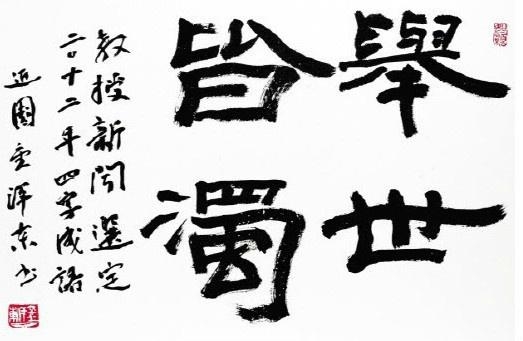 舉世
皆濁
教授新聞選定
二〇十二年四字成語
近園金洋東書